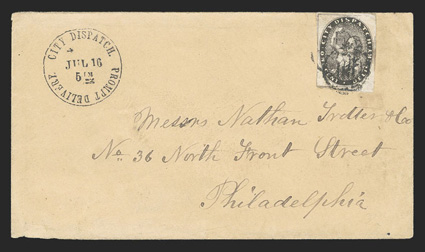 CITY DISPATCH.
JUL 16
5
PROMPT DELIVERY.
CITY DISPATCH
Messrs Nathan Trotter & Co
No 36 North Front Street
Philadelphia